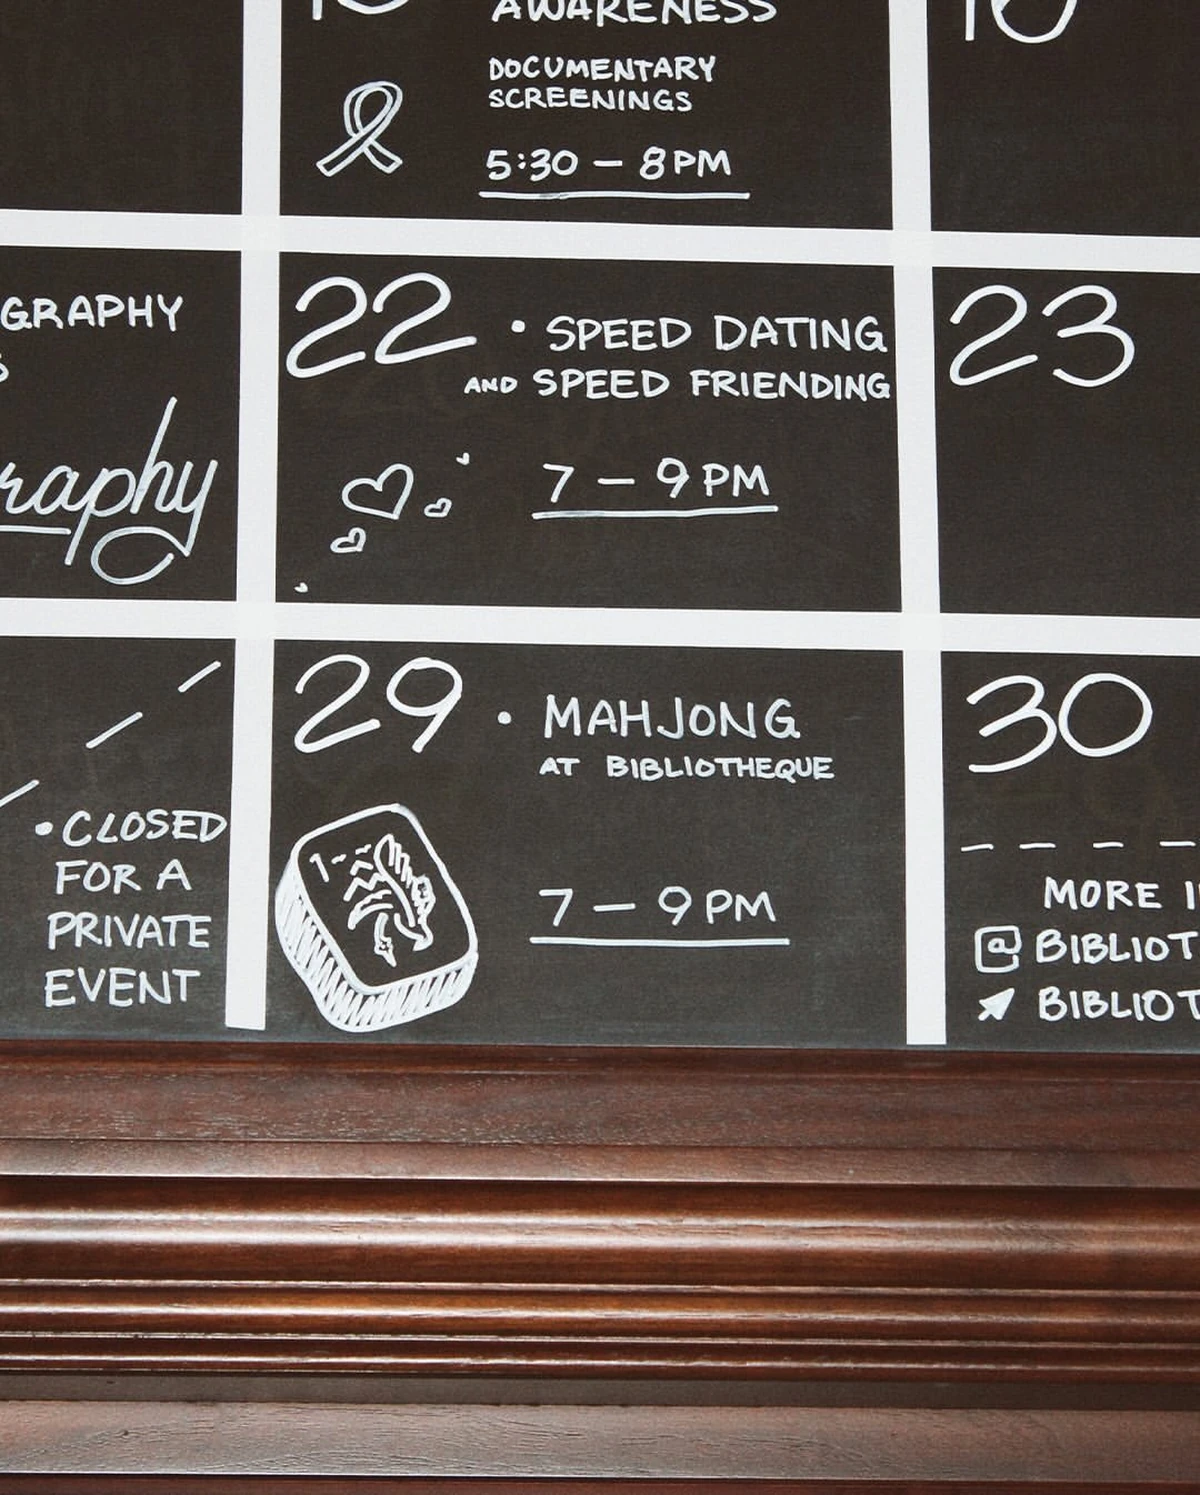 AWARENESS
DOCUMENTARY
SCREENINGS
5:30 — 8PM
GRAPHY
raphy
22 • SPEED DATING
AND SPEED FRIENDING
7 — 9PM
23
• CLOSED
FOR A
PRIVATE
EVENT
29 • MAHJONG
AT BIBLIOTHEQUE
7 — 9PM
30
MORE I
@ BIBLIOT
BIBLIOT